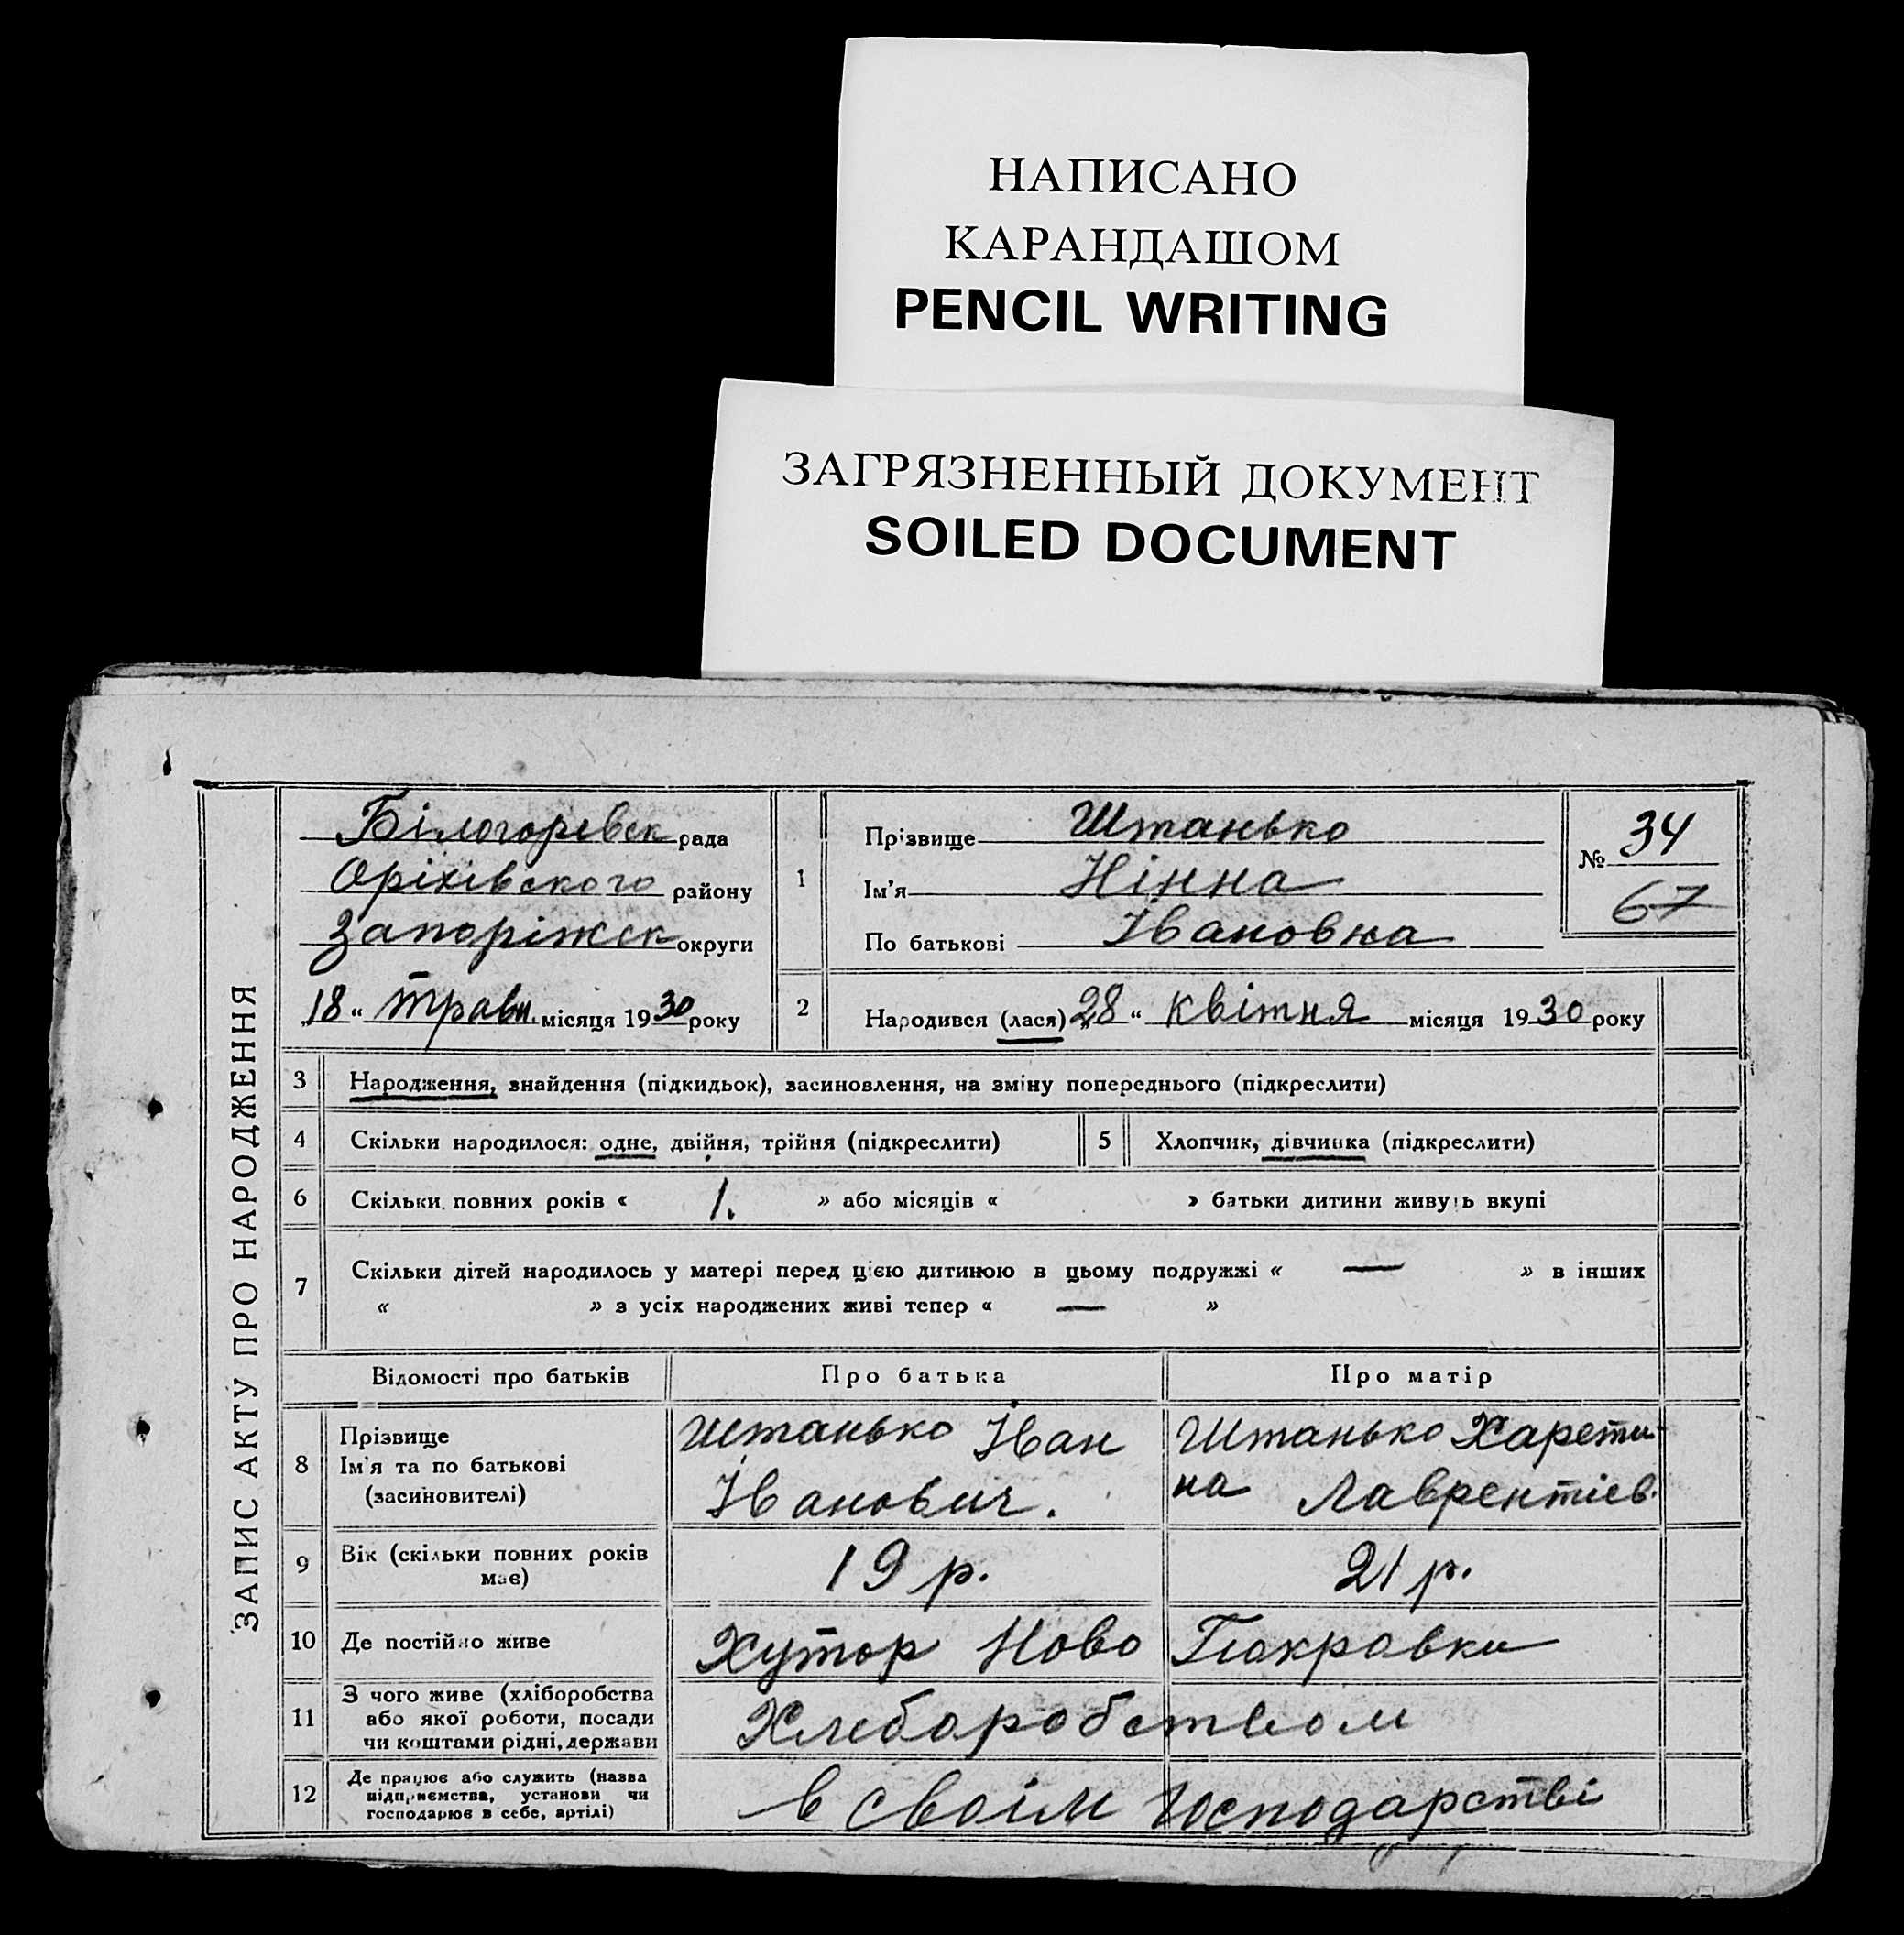 НАПИСАНО
КАРАНДАШОМ
PENCIL WRITING
ЗАГРЯЗНЕННЫЙ ДОКУМЕНТ
SOILED DOCUMENT
ЗАПИС АКТУ ПРО НАРОДЖЕННЯ
Білогоревск рада
Оріхівского району
Запоріжск округи
„18“ травн. місяця 1930 року
1
Прізвище Штанько
Ім'я Нінна
По батькові Івановна
№ 34
67
2 Народився (лася) „28“ квітня місяця 1930 року
3 Народження, знайдення (підкидьок), засиновлення, на зміну попереднього (підкреслити)
4 Скільки народилося: одне, двійня, трійня (підкреслити) 5 Хлопчик, дівчинка (підкреслити)
6 Скільки повних років « 1. » або місяців « » батьки дитини живуть вкупі
7 Скільки дітей народилось у матері перед цією дитиною в цьому подружжі « — » в інших
« » з усіх народжених живі тепер « — »
Відомості про батьків Про батька Про матір
8 Прізвище
Ім'я та по батькові
(засиновителі)
Штанько Іван
Іванович.
Штанько Харети-
на Лаврентіев.
9 Вік (скільки повних років
має)
19 р. 21 р.
10 Де постійно живе Хутор Ново Покровки
11 З чого живе (хліборобства
або якої роботи, посади
чи коштами рідні, держави
Хлеборобством
12 Де працює або служить (назва
підприємства, установи чи
господарює в себе, артілі)
в своім господарстві